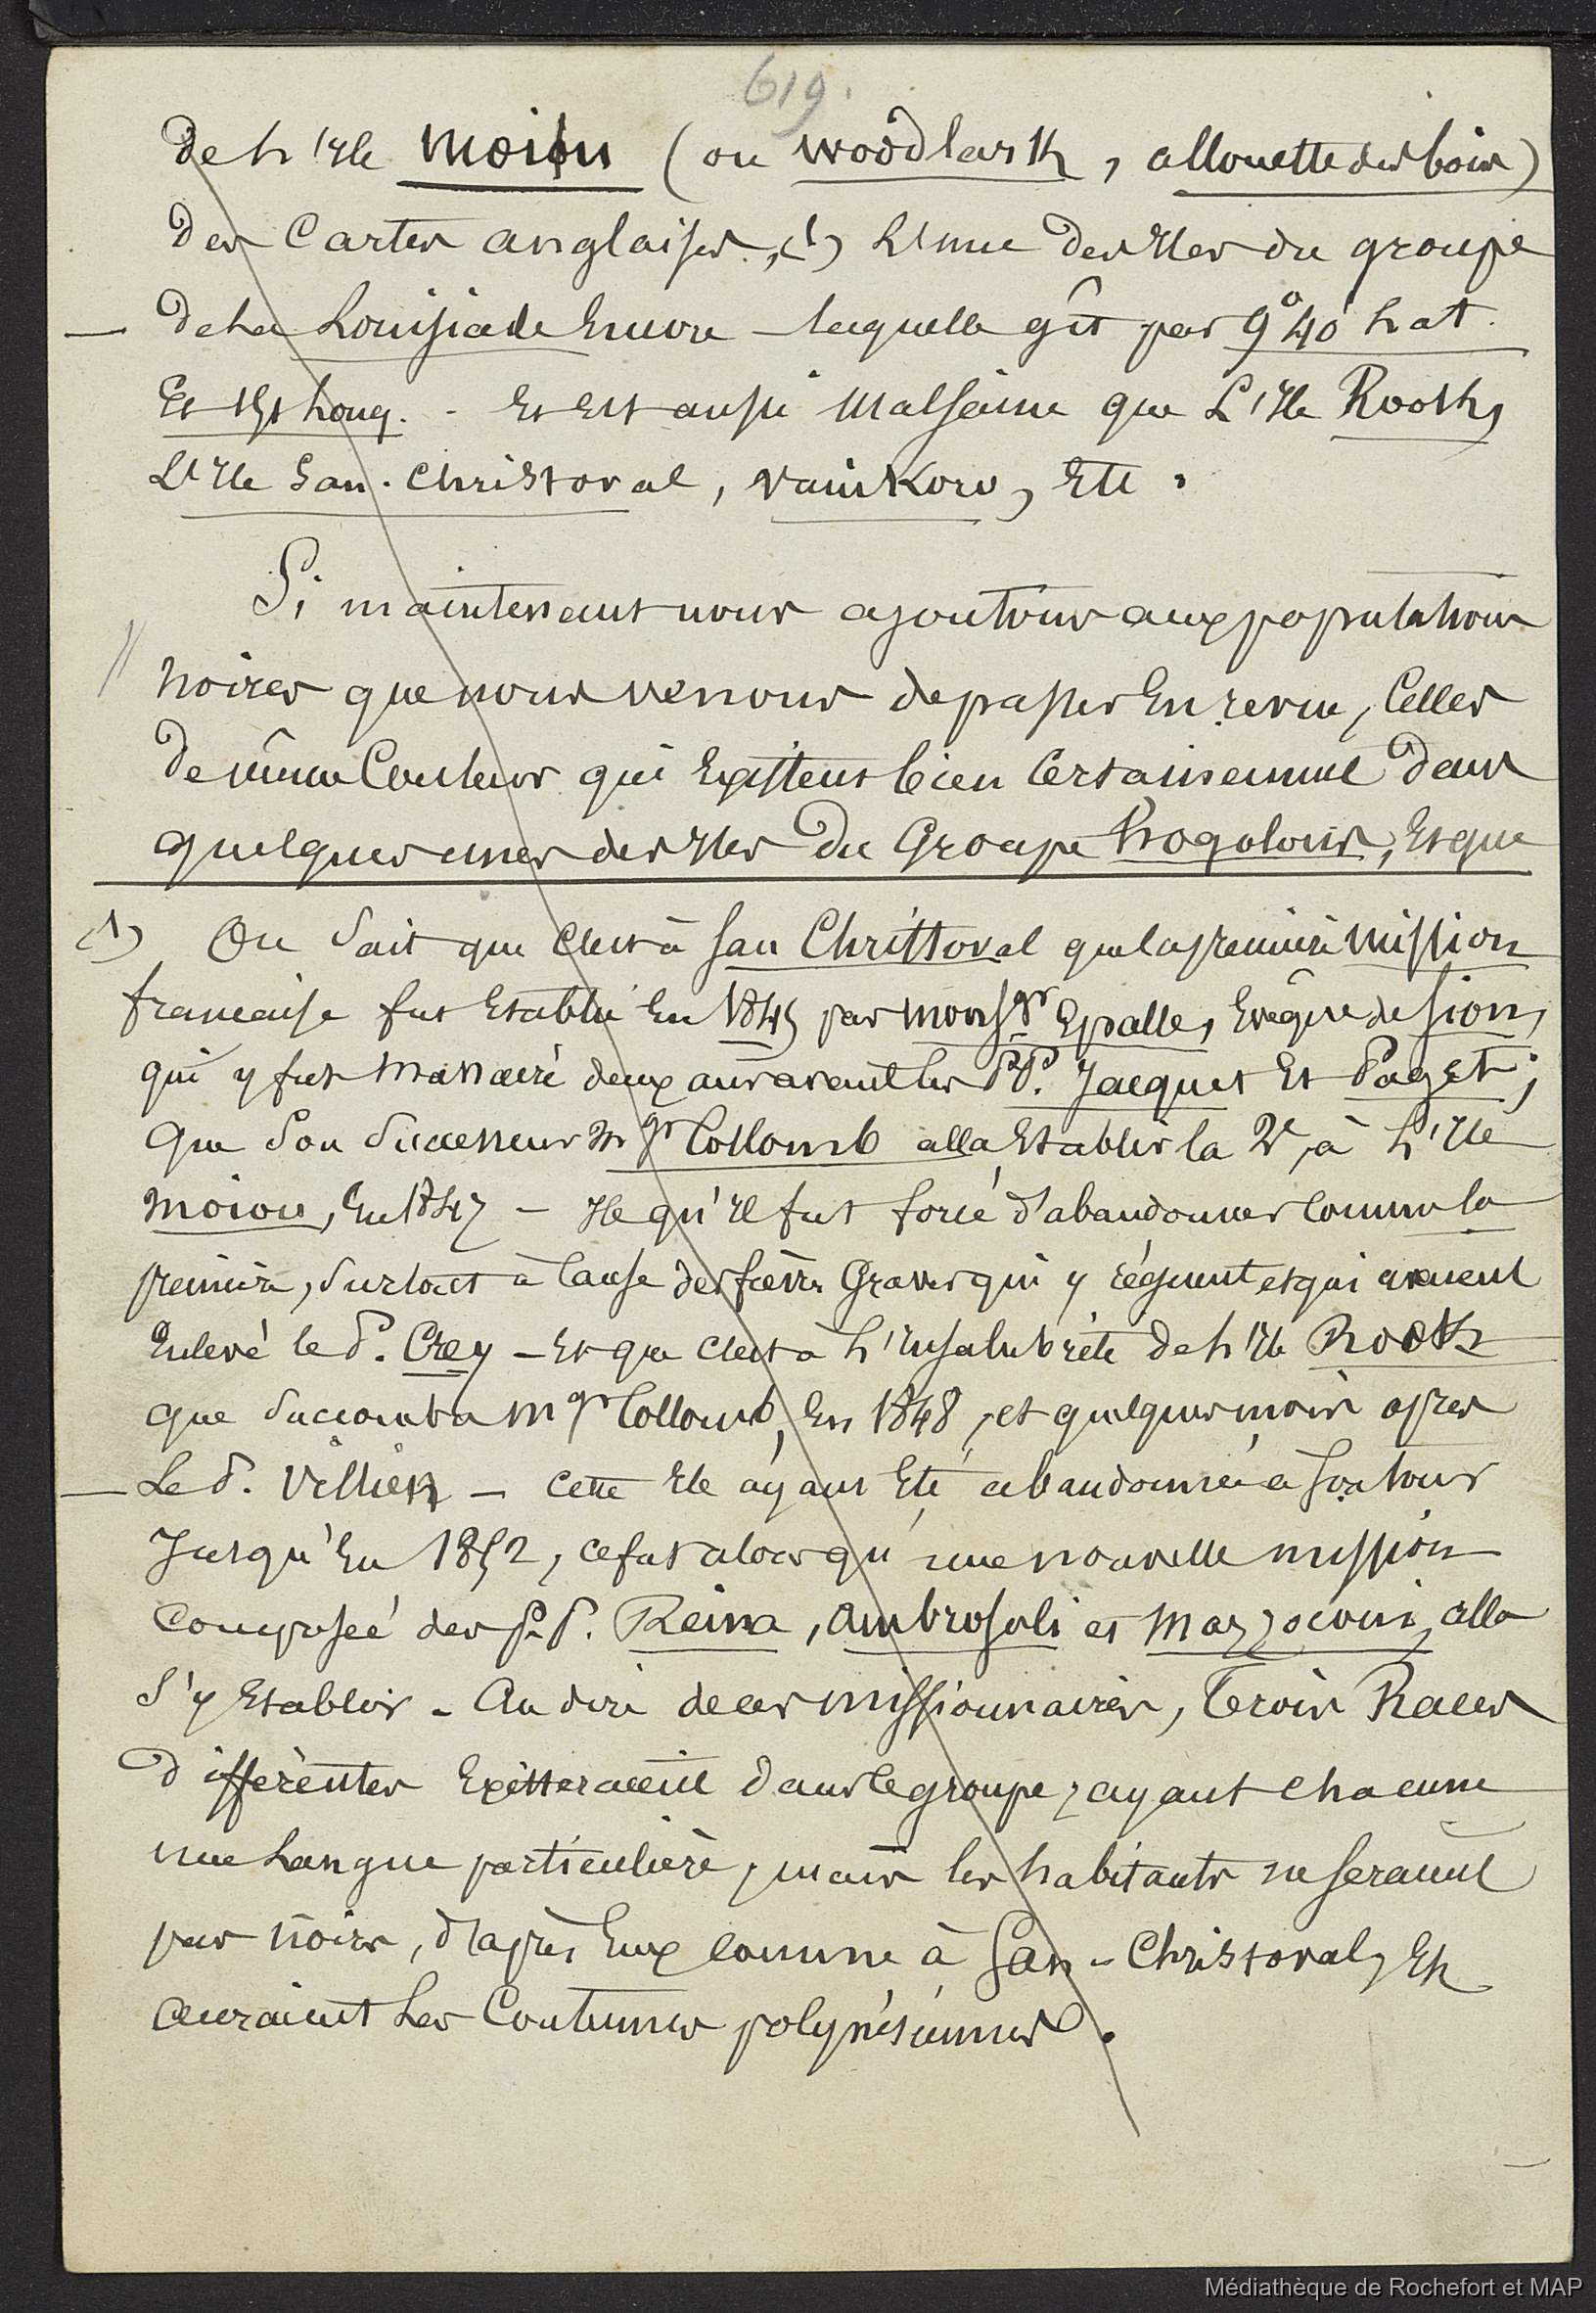 619.
de l'Ile Moiou (ou Woodlark, allouette des bois)
des Cartes anglaises, (1) l'une des Iles du groupe
— de la Louisiade Encore — laquelle gît par 9° 40' Lat.
Et 151 Long. - Et est aussi malsaine que L'Ile Rooth,
L'Ile San-Christoval, Vanikoro, Etc.
Si maintenant nous ajoutons aux populations
noires que nous venons de passer En revue, Celles
de même Couleur qui Existent bien Certainement dans
quelques unes des Iles du Groupe Hogolous, Et que
(1) On Sait que C'est à San Christtoval que la première mission
francaise fut Etablie En 1845 par Monsgr Epalle, Evêque de Sion,
qui y fut massacré deux ans avant les P.P. Jacquet Et Paget;
Que Son Successeur Mgr Collomb alla Etablir la 2e, à L'Ile
Moiou, En 1847 — Ile qu'Il fut forcé d'abandonner Comme la
première, Surtout à Cause des fièvres Graves qui y règnent et qui avaient
Enlevé le P. Crey — Et que C'est à L'Insalubrité de L'Ile Rooth
que Succomba Mgr Collomb, En 1848, et quelques mois après
— Le P. Villien — Cette Ile ayant Eté abandonnée à Son tour
Jusqu'En 1852, ce fut alors qu'une nouvelle mission
Composée des P.P. Reina, Ambrosoli et Mazzoconi, alla
S'y Etablir. - Au dire de ces missionnaires, Trois Races
différentes Existeraient dans le groupe, ayant chacune
une Langue particulière, mais les habitants ne seraient
pas noirs, d'après Eux comme à San-Christoval, Et
auraient Les Coutumes polynésiennes.
Médiathèque de Rochefort et MAP